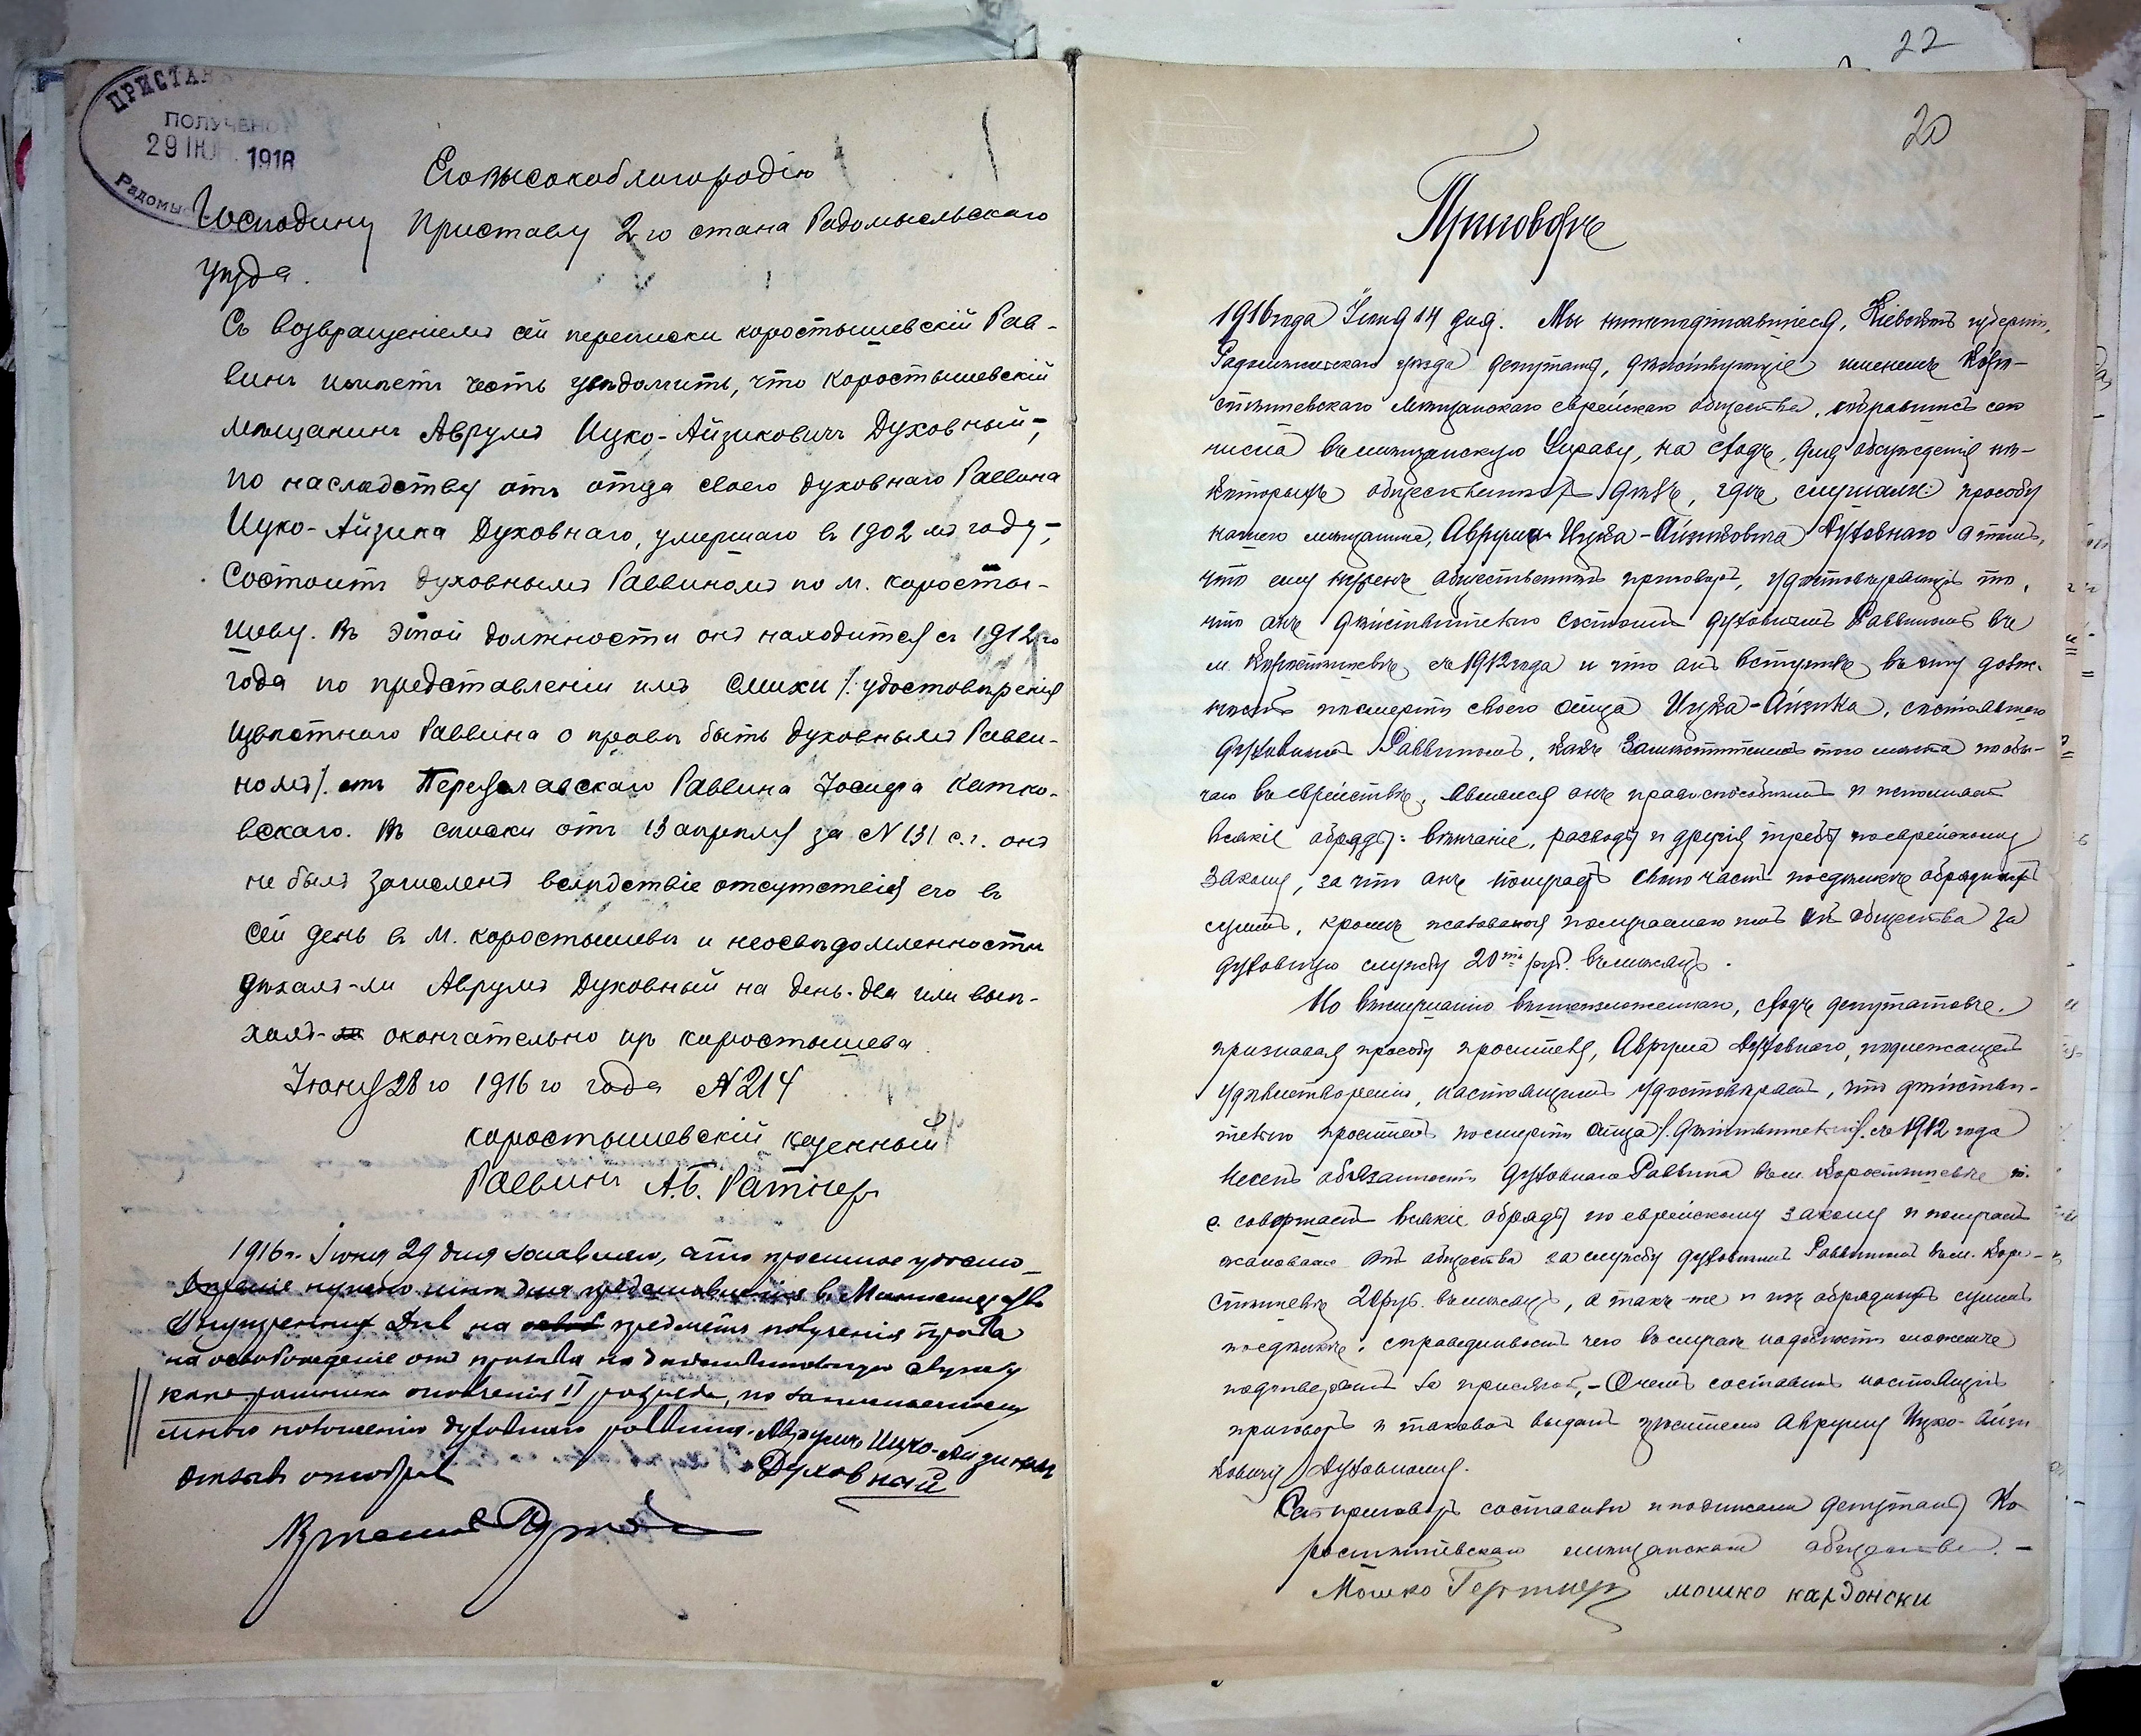 ПРИСТАВ
ПОЛУЧЕНО
29 ІЮН 1916
Радомыс
Его высокоблагородію
Господину Приставу 2го стана Радомысльскаго
уѣзда.
Съ возвращеніемъ сей переписки коростышевскій Рав-
винъ имѣетъ честь увѣдомить, что коростышевскій
мѣщанинъ Аврумъ Ицко-Айзиковичъ Духовный,
по наслѣдству отъ отца своего духовнаго Раввина
Ицко-Айзика Духовнаго, умершаго въ 1902мъ году,
Состоитъ духовнымъ Раввиномъ по м. коросты-
шеву. Въ этой должности онъ находится съ 1912го
года по представленіи имъ Смихи /: удостовѣренія
извѣстнаго Раввина о правѣ быть духовнымъ Равви-
номъ/. отъ Переяславскаго Раввина Іосифа
вскаго. Въ списки отъ 13 апрѣля за N 131 с.г. онъ
не былъ зачисленъ вслѣдствіе отсутствія его въ
Сей день въ м. коростышевѣ и неосвѣдомленности
уѣхалъ-ли Аврумъ Духовный на день-два или выѣ-
халъ-ли окончательно изъ коростышева
Іюня 28го 1916го года N 214
коростышевскій казенный
Раввинъ А.Б. Ратнеръ
1916г. Іюня 29 дня заявляю, что просимое удосто-
вѣреніе нужно мнѣ для представленія въ Министерство
Внутреннихъ Дѣлъ на предметъ полученія права
на освобожденіе отъ призыва на дѣйствительную службу
какъ ратника ополченія II разряда, по занимаемому
мною положенію духовнаго раввина. Аврумъ Ицко-Айзиковъ
Духовный
Отзывъ отобралъ
22
20
Приговоръ
1916 года Іюня 14 дня. Мы нижеподписавшіеся, Кіевской губерніи,
Радомысльскаго уѣзда депутаты, дѣйствующіе именемъ Коро-
стышевскаго мѣщанскаго еврейскаго общества, собравшись сего
числа въ мѣщанскую Управу, на сходъ, для обсужденія нѣ-
которыхъ общественныхъ дѣлъ, гдѣ слушали: просьбу
нашего мѣщанина, Аврума Ицка-Айзиковича Духовнаго о томъ,
что ему нуженъ общественный приговоръ, удостовѣряющій то,
что онъ дѣйствительно состоитъ духовнымъ Раввиномъ въ
м. Коростышевѣ, съ 1912 года и что онъ вступилъ въ эту долж-
ность послѣ смерти своего отца Ицка-Айзика, состоявшаго
духовнымъ Раввиномъ, какъ заместитель того мѣста по обы-
чаю въ еврействѣ, явился онъ правоспособнымъ и исполняетъ
всякіе обряды: вѣнчаніе, разводы и другія требы по еврейскому
закону, за что онъ получаетъ свою часть обрядныхъ
суммъ, кромѣ жалованія получаемаго имъ отъ общества за
духовную службу 20ть руб. въ мѣсяцъ.
По выслушанію вышеизложеннаго, сходъ депутатовъ,
признавая просьбу просителя, Аврума Духовнаго, подлежащей
удовлетворенію, настоящимъ удостовѣряетъ, что дѣйстви-
тельно проситель послѣ смерти отца /. дѣйствительно/. съ 1912 года
несетъ обязанность духовнаго Раввина въ м. Коростышевѣ т.
е. совершаетъ всякіе обряды по еврейскому закону и получаетъ
жалованіе отъ общества за службу духовнымъ Раввиномъ въ м. Коро-
стышевѣ 20 руб. въ мѣсяцъ, а также и изъ обрядныхъ суммъ
справедливость чего въ случаѣ надобности можемъ
подтвердить за присягой,- О чемъ составилъ настоящій
приговоръ и таковой выдать просителю Авруму Ицко-Айзи
ковичу Духовному.
Сей приговоръ составили и подписали депутаты Ко
ростышевскаго мѣщанскаго общества.-
Мошко мошко кардонски